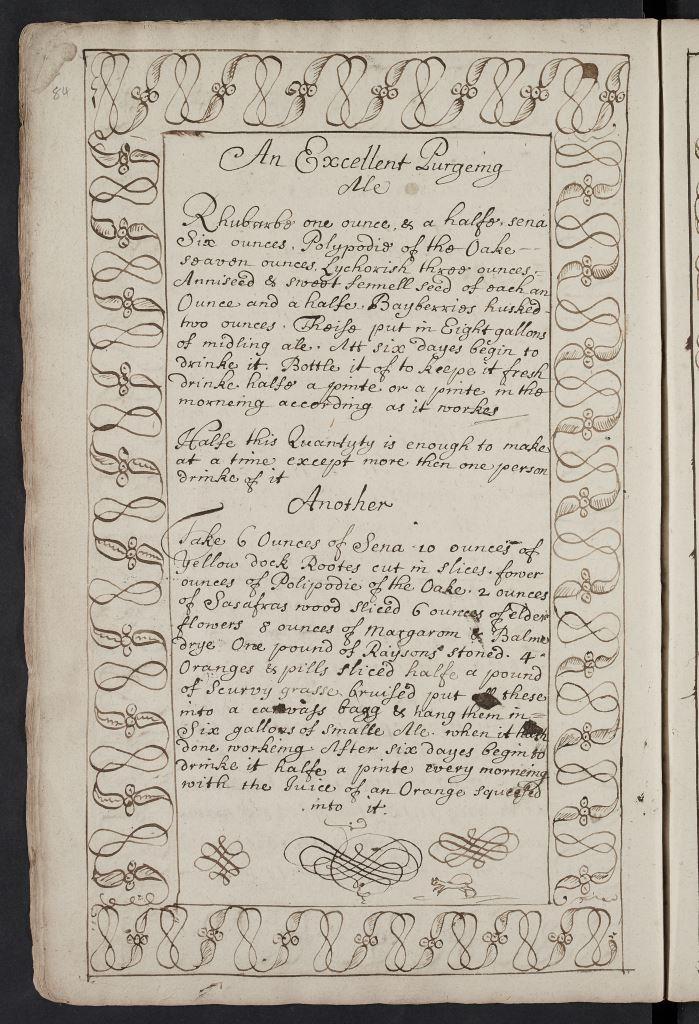 84
An Excellent Purgeing
Ale
Rhubarbe one ounce, & a halfe, sena
Six ounces, Polypodie of the Oake
seaven ounces, Lychorish three ounces,
Anniseed & sweet fennell seed of each an
Ounce and a halfe, Bayberries husked
two ounces. Theise put in Eight gallons
of midling ale. Att six dayes begin to
drinke it. Bottle it of to keepe it fresh
drinke halfe a pinte or a pinte in the
morneing according as it workes
Halfe this Quantyty is enough to make
at a time except more then one person
drinke of it
Another
Take 6 Ounces of Sena 10 ounces of
Yellow dock Rootes cut in slices, fower
ounces of Polipodie of the Oake. 2 ounces
of Sasafras wood sliced 6 ounces of elder
flowers 8 ounces of Margarom & Balme
drye One pound of Raysons stoned. 4
Oranges & pills sliced halfe a pound
of Scurvy grasse bruised put all these
into a canvass bagg & hang them in
Six gallons of smalle Ale. when it hath
done workeing After six dayes begin to
drinke it halfe a pinte every morneing
with the Juice of an Orange squeesed
into it.